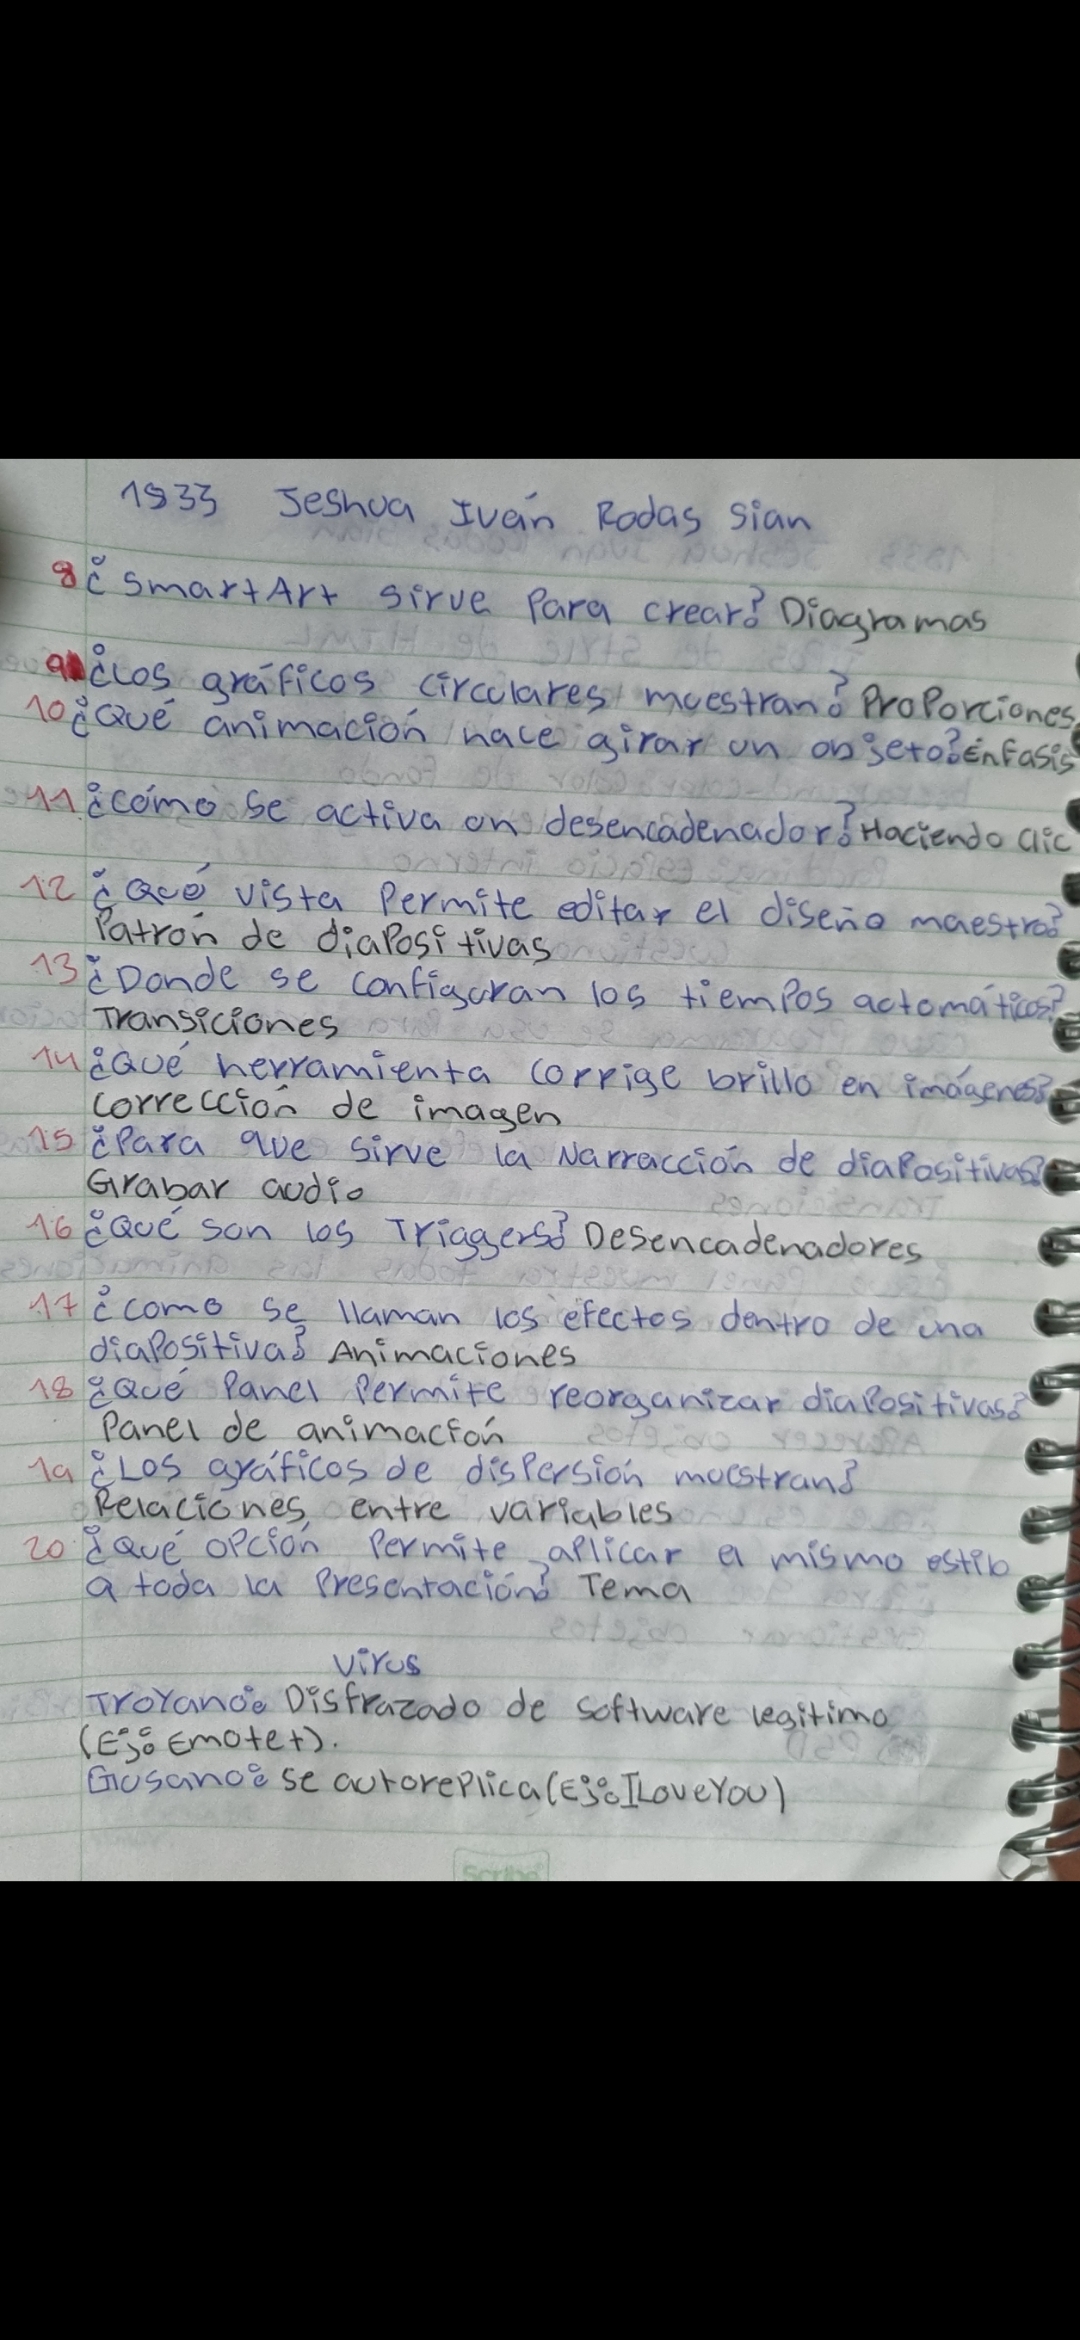 1933 Jeshua Iván Rodas Sian
8 ¿SmartArt sirve Para crear? Diagramas
9 ¿Los gráficos circulares muestran? ProPorciones
10 ¿Qué animación hace girar un objeto? Énfasis
11 ¿cómo se activa un desencadenador? Haciendo clic
12 ¿Qué vista Permite editar el diseño maestro?
Patrón de diaPositivas
13 ¿Donde se configuran los tiemPos automáticos?
Transiciones
14 ¿Qué herramienta corrige brillo en imágenes?
corrección de imagen
15 ¿Para que sirve la Narracción de diaPositivas?
Grabar audio
16 ¿Qué son los Triggers? Desencadenadores
17 ¿como se llaman los efectos dentro de una
diaPositiva? Animaciones
18 ¿Qué Panel Permite reorganizar diaPositivas?
Panel de animación
19 ¿Los gráficos de disPersión muestran?
Relaciones entre variables
20 ¿Qué oPción Permite aPlicar el mismo estilo
a toda la Presentación? Tema
Virus
Troyano: Disfrazado de software legitimo
(Ej: Emotet).
Gusano: se autorePlica (Ej: ILoveYou)
Scribe